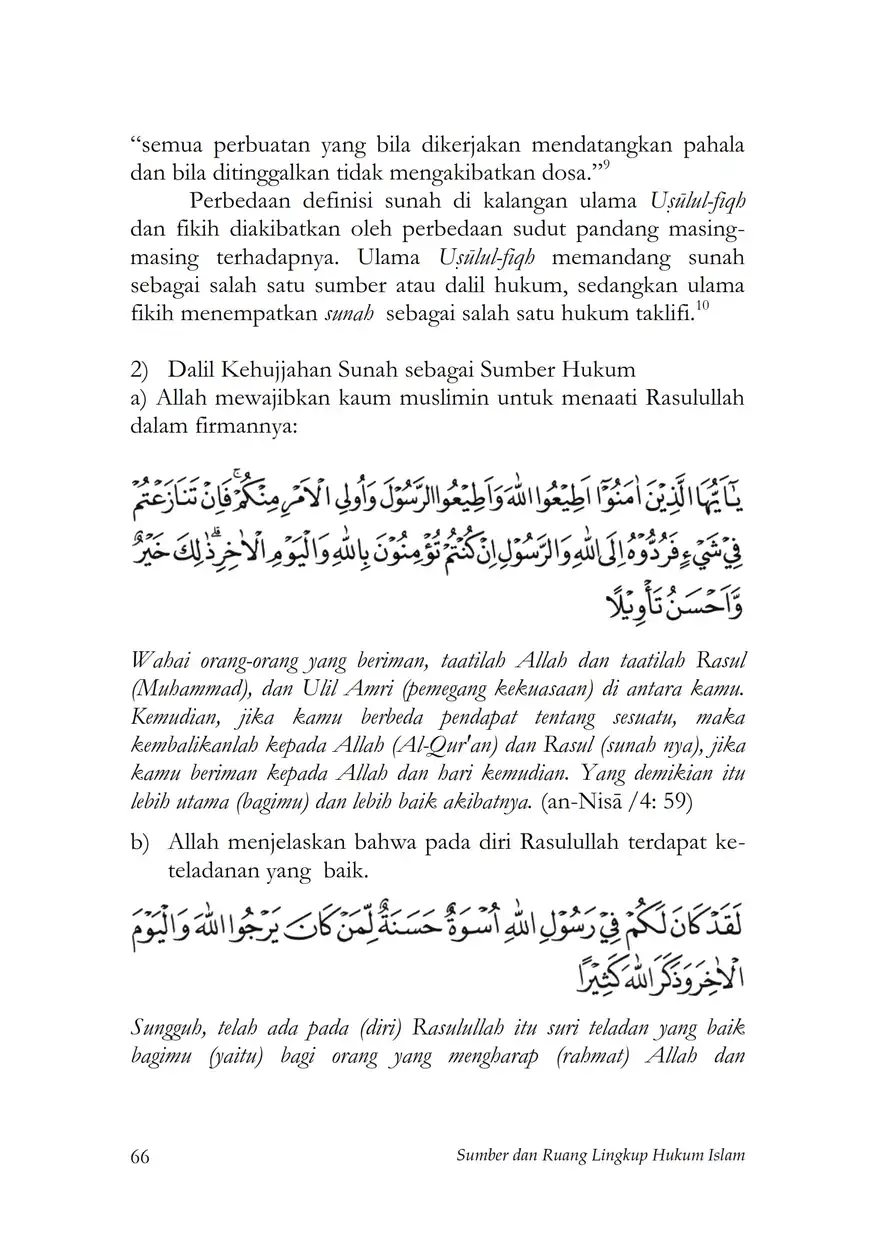 “semua perbuatan yang bila dikerjakan mendatangkan pahala
dan bila ditinggalkan tidak mengakibatkan dosa.”9
Perbedaan definisi sunah di kalangan ulama Uṣūlul-fiqh
dan fikih diakibatkan oleh perbedaan sudut pandang masing-
masing terhadapnya. Ulama Uṣūlul-fiqh memandang sunah
sebagai salah satu sumber atau dalil hukum, sedangkan ulama
fikih menempatkan sunah sebagai salah satu hukum taklifi.10
2) Dalil Kehujjahan Sunah sebagai Sumber Hukum
a) Allah mewajibkan kaum muslimin untuk menaati Rasulullah
dalam firmannya:
يٰٓاَيُّهَا الَّذِيْنَ اٰمَنُوْٓا اَطِيْعُوا اللّٰهَ وَاَطِيْعُوا الرَّسُوْلَ وَاُولِى الْاَمْرِ مِنْكُمْۚ فَاِنْ تَنَازَعْتُمْ
فِيْ شَيْءٍ فَرُدُّوْهُ اِلَى اللّٰهِ وَالرَّسُوْلِ اِنْ كُنْتُمْ تُؤْمِنُوْنَ بِاللّٰهِ وَالْيَوْمِ الْاٰخِرِۗ ذٰلِكَ خَيْرٌ
وَّاَحْسَنُ تَأْوِيْلًا
Wahai orang-orang yang beriman, taatilah Allah dan taatilah Rasul
(Muhammad), dan Ulil Amri (pemegang kekuasaan) di antara kamu.
Kemudian, jika kamu berbeda pendapat tentang sesuatu, maka
kembalikanlah kepada Allah (Al-Qur'an) dan Rasul (sunah nya), jika
kamu beriman kepada Allah dan hari kemudian. Yang demikian itu
lebih utama (bagimu) dan lebih baik akibatnya. (an-Nisā /4: 59)
b) Allah menjelaskan bahwa pada diri Rasulullah terdapat ke-
teladanan yang baik.
لَقَدْ كَانَ لَكُمْ فِيْ رَسُوْلِ اللّٰهِ اُسْوَةٌ حَسَنَةٌ لِّمَنْ كَانَ يَرْجُوا اللّٰهَ وَالْيَوْمَ
الْاٰخِرَ وَذَكَرَ اللّٰهَ كَثِيْرًا
Sungguh, telah ada pada (diri) Rasulullah itu suri teladan yang baik
bagimu (yaitu) bagi orang yang mengharap (rahmat) Allah dan
66
Sumber dan Ruang Lingkup Hukum Islam